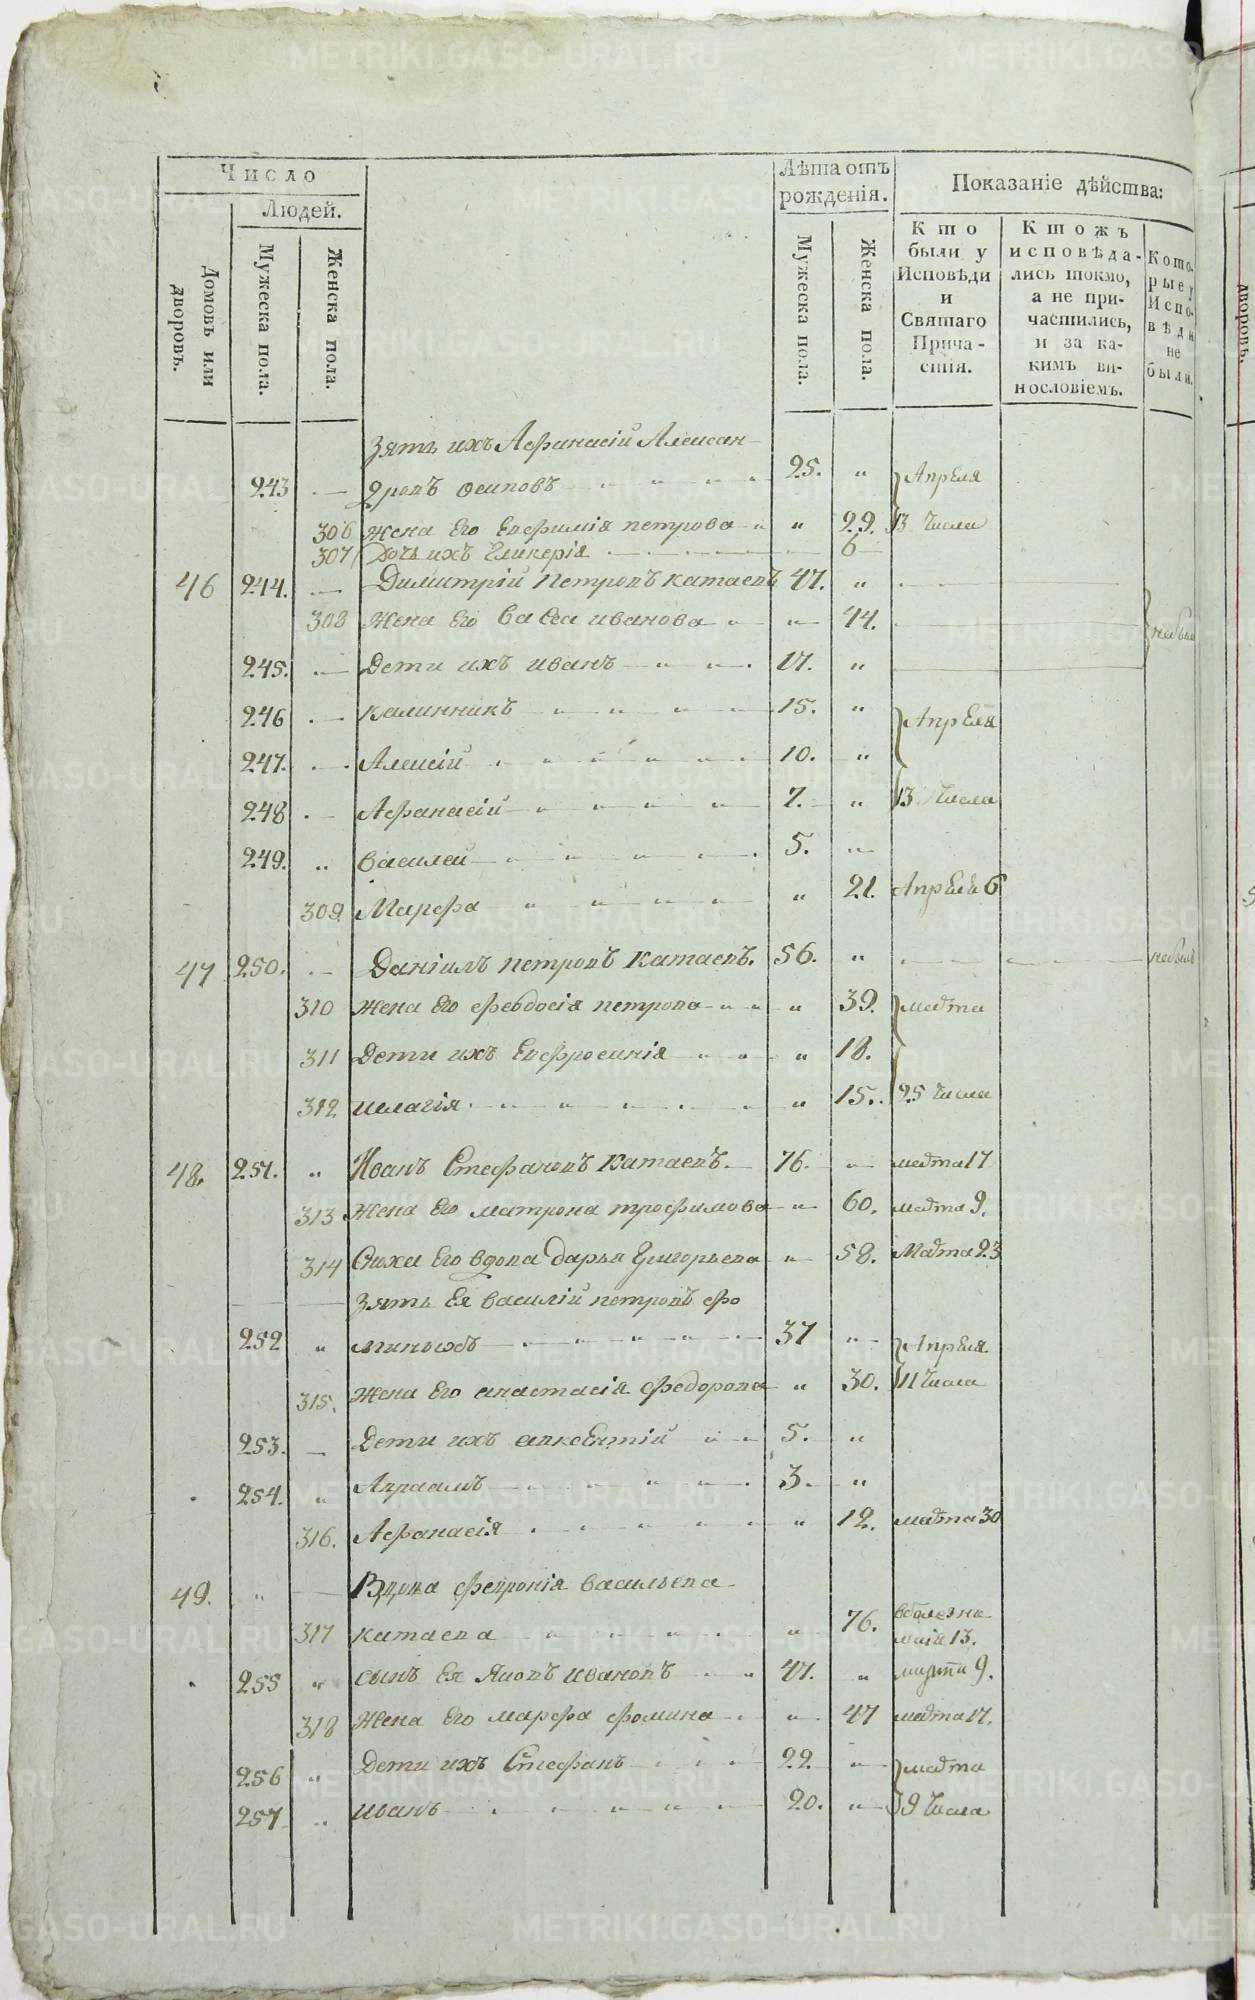 Число
Людей.
Домовъ или дворовъ.
Мужеска пола.
Женска пола.
Лѣта отъ рожденія.
Мужеска пола.
Женска пола.
Показаніе дѣйства:
Кто были у Исповѣди и Святаго Причастія.
Ктожъ исповѣдались токмо, а не причастились, и за какимъ винословіемъ.
Которые у Исповѣди не были.
Зять ихъ Афанасій Алексан
243 — дровъ Осиповъ 25. " Апреля
306 Жена Его Евфимія петрова " 29. 13 Числа
307 Дочь ихъ Гликерія — 6
46 244. — Димитрій Петровъ Катаевъ 47. "
308 Жена Его Васса иванова " 44.
245. — Дети ихъ иванъ 17. "
246 — Калинникъ 15. " Апреля
247. — Алексій 10. "
248 — Афанасій 7. " 13 Числа
249. " Василей 5. "
309. Марфа " 21. Апреля 6
47 250. — Даніилъ петровъ Катаевъ. 56. " небылъ
310 Жена Его Феодосія петрова " 39. марта
311 Дети ихъ Евфросинія " 18.
312 " 15. 25 Числа
48. 251. " Иванъ Стефановъ Катаевъ. 76. " марта 17
313 Жена Его матрона трофимова " 60. марта 9.
314 Сноха Его вдова Дарья Григорьева " 58. Марта 23
Зять Ея Василій петровъ Фо
252 " миныхъ 37 " Апреля
315. Жена Его анастасія Федорова " 30. 11 Числа
253. — Дети ихъ 5. "
254. " Авраамъ 3. "
316. Афанасія " 12. марта 30
49. " — Вдова Феврония Васильева
317 катаева " 76. маія 13.
255 " сынъ Ея Яковъ Ивановъ 47. " марта 9.
318 Жена Его марфа Фомина " 47 марта 17.
256 " Дети ихъ Стефанъ 22. " марта
257 " иванъ 20. " 9 Числа
METRIKI.GASO-URAL.RU